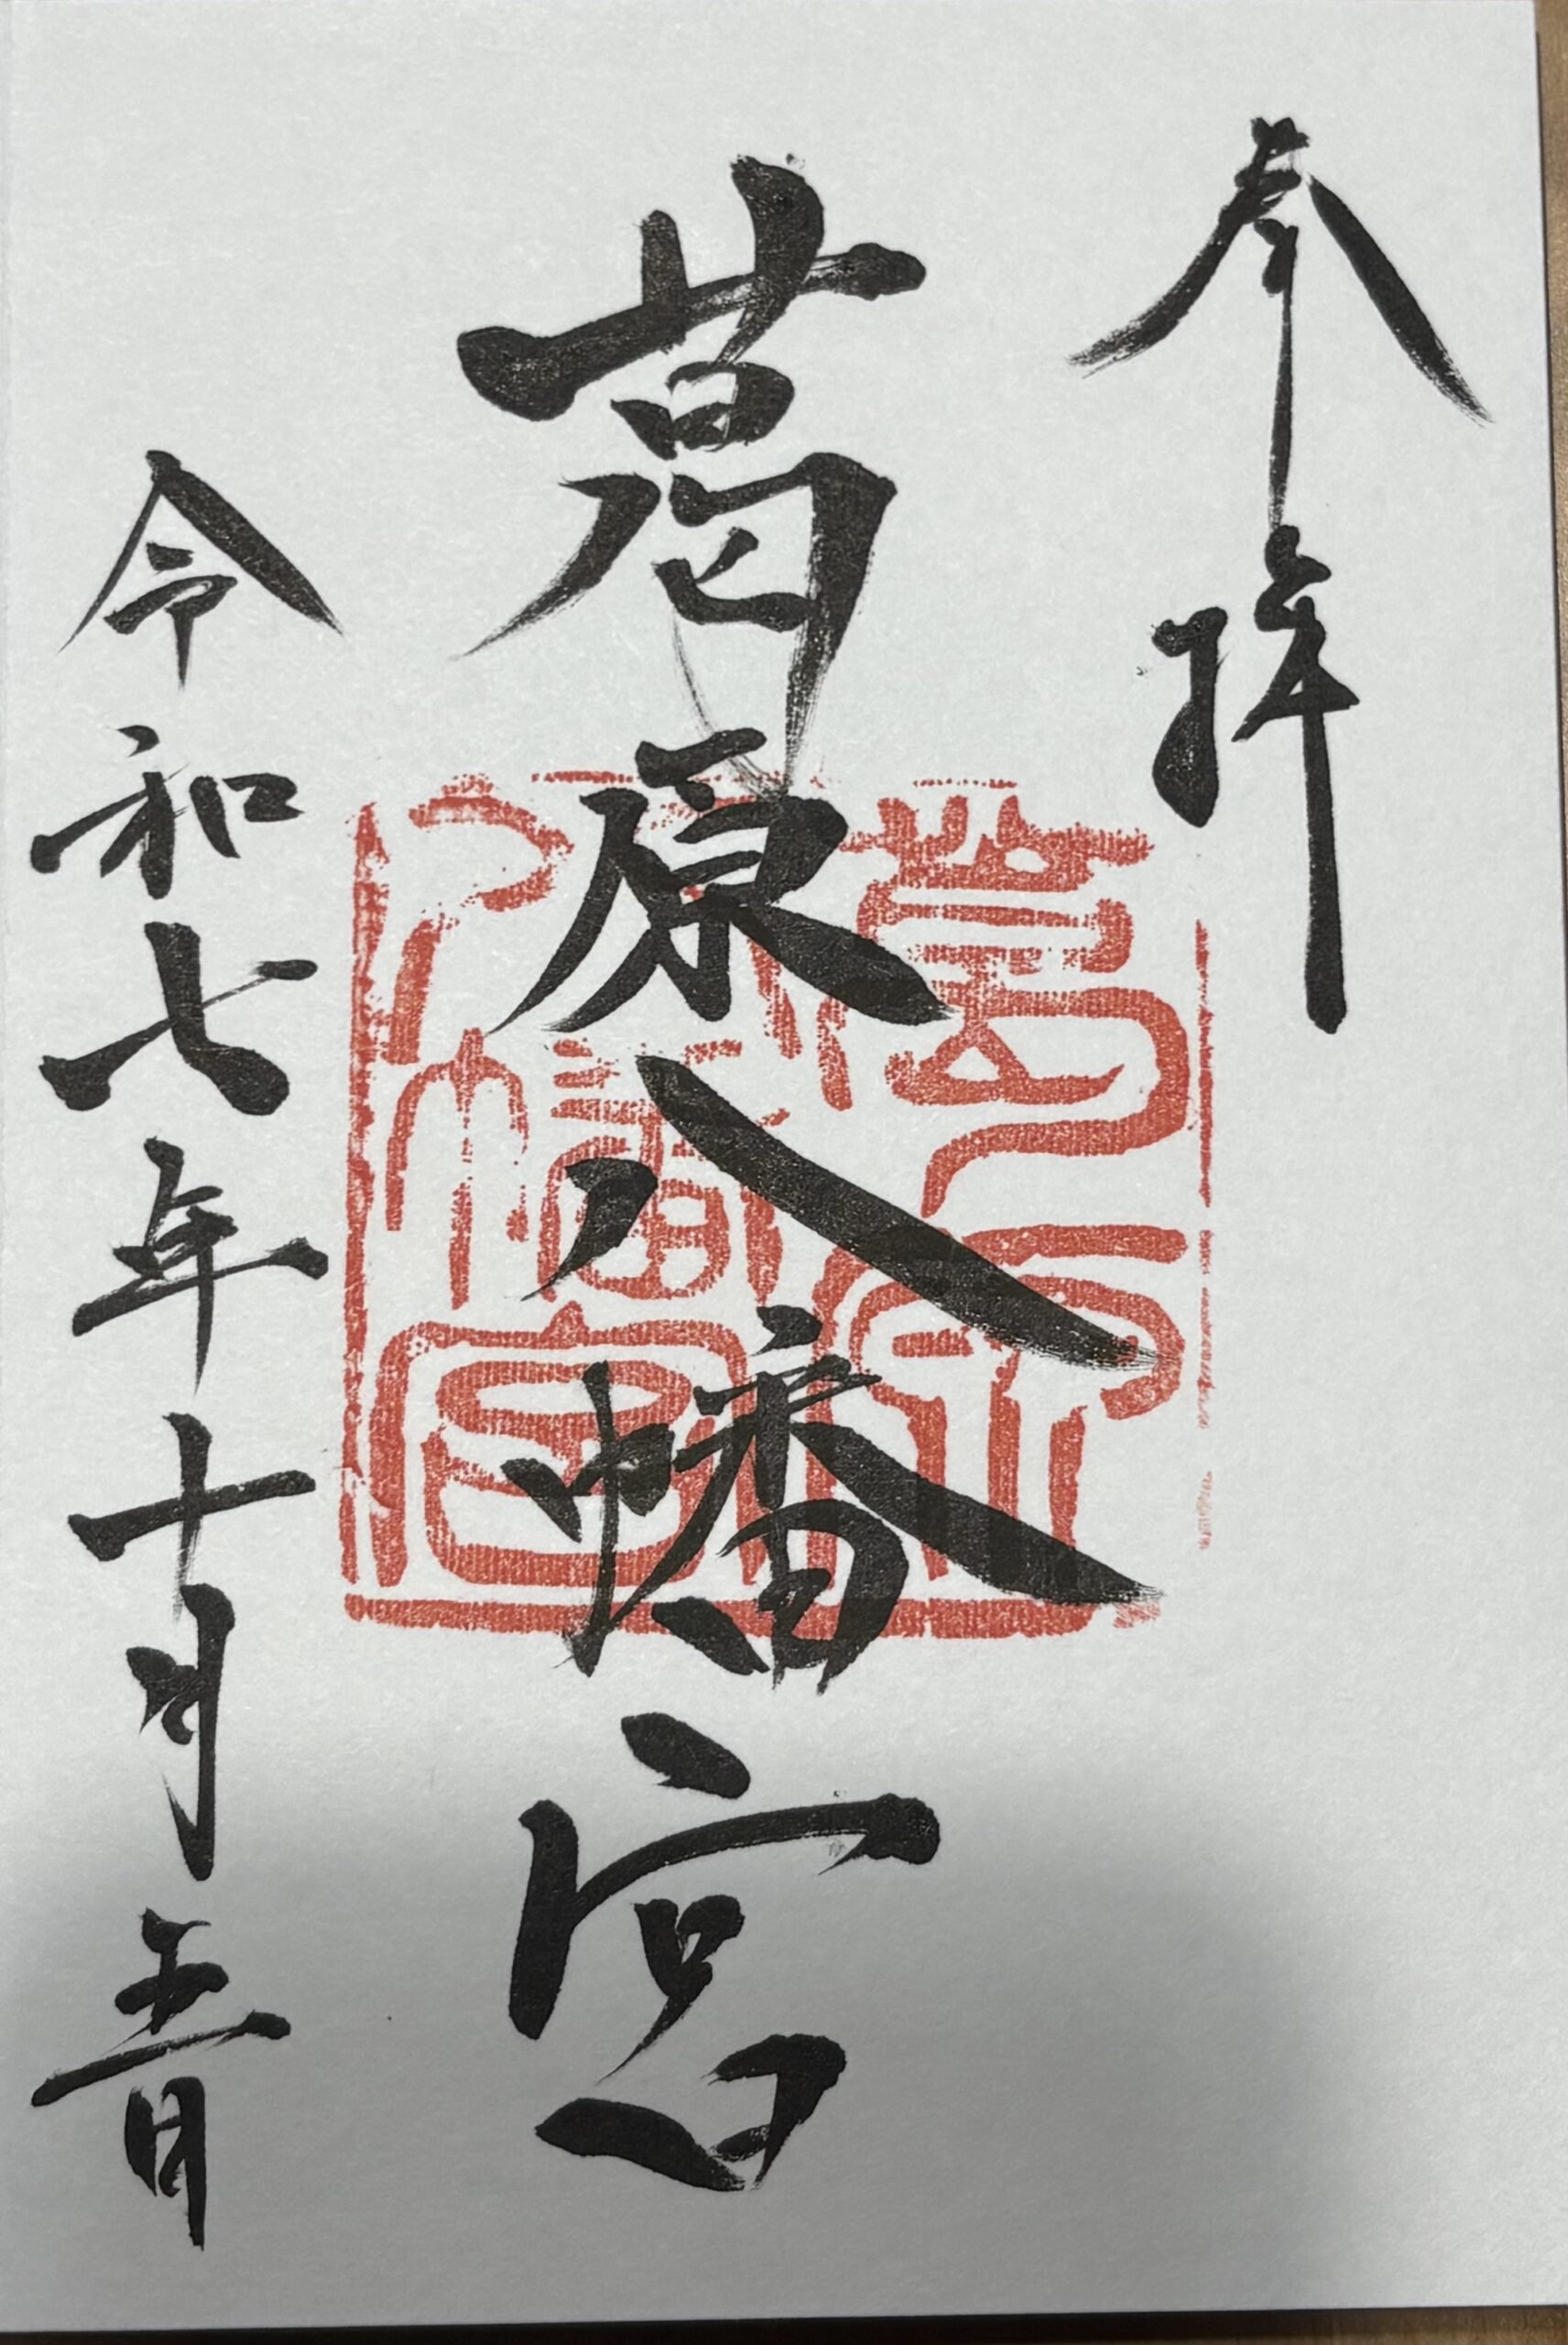 奉拝
葛原八幡宮
令和七年十月五日
葛原
八幡宮